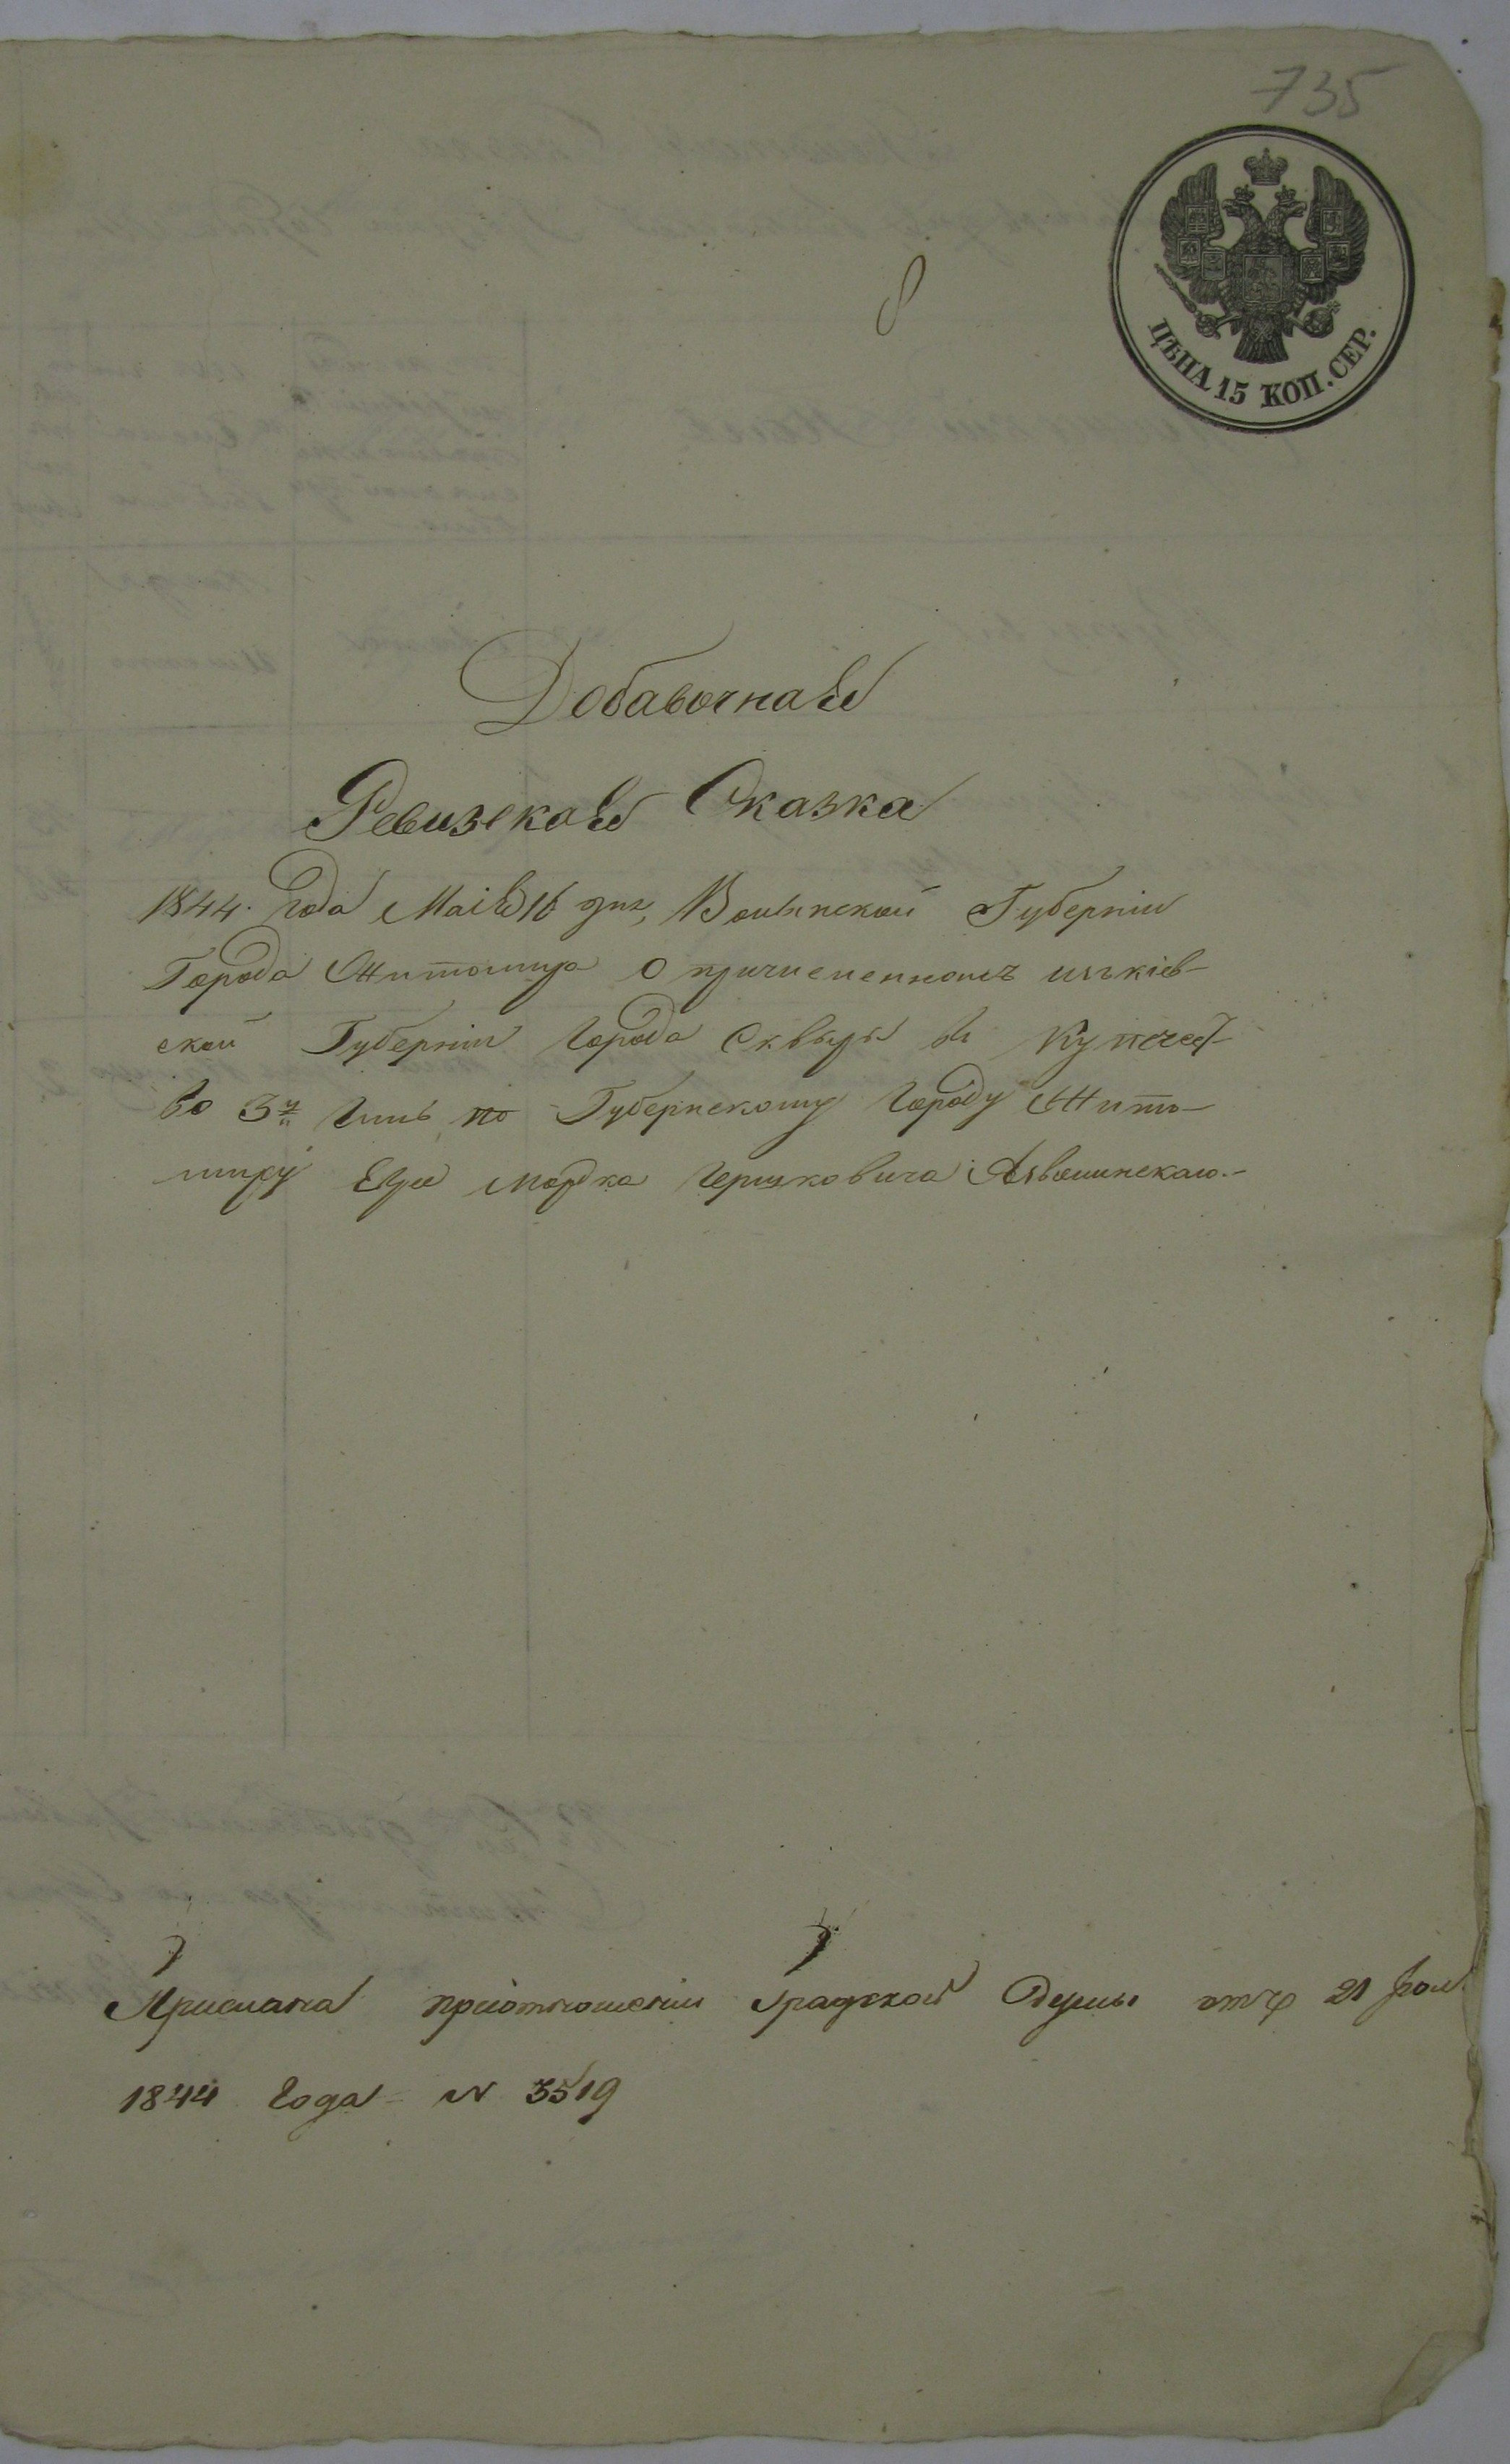 735
ЦѢНА 15 КОП. СЕР.
8
Добавочная
Ревизская Сказка
1844. года Маія 16 дня, Волынской Губерніи
Города Житомира О причисленномъ изъ кіев-
ской Губерніи города Сквыры въ Купечест-
во 3й Гиль по Губернскому городу Жито-
миру Мордка Гершковича
Прислана приотношеніи Градской Думы отъ 21
1844 года N 3519